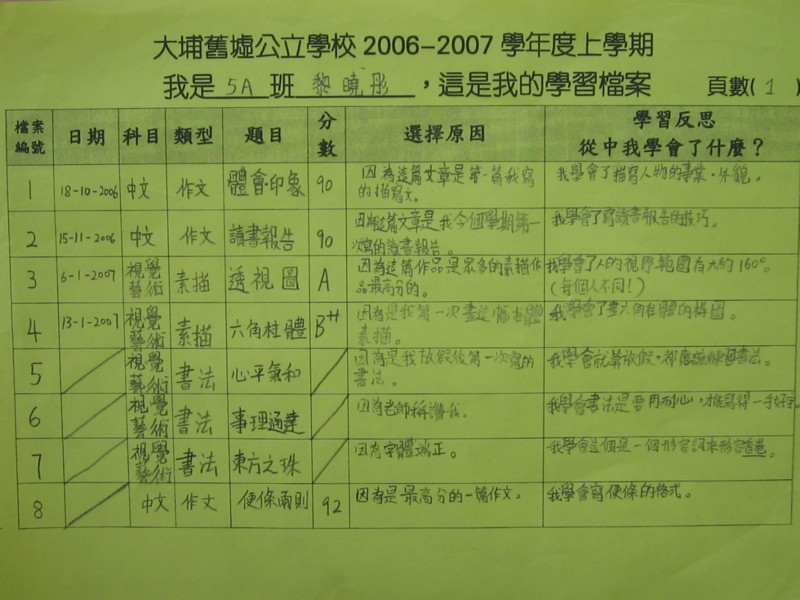 大埔舊墟公立學校 2006-2007 學年度上學期
我是 5A 班 黎曉彤 ,這是我的學習檔案 頁數( 1 )
檔案編號 日期 科目 類型 題目 分數 選擇原因 學習反思 從中我學會了什麼?
1 18-10-2006 中文 作文 體會‧印象 90 因為這篇文章是第一篇我寫的描寫文。 我學會了描寫人物的‧外貌。
2 15-11-2006 中文 作文 讀書報告 90 因為這篇文章是我今個學期第一次寫的讀書報告。 我學會了寫讀書報告的技巧。
3 6-1-2007 視覺藝術 素描 透視圖 A 因為這篇作品是眾多的素描作品最高分的。 我學會了人的視野範圍有大約160°。(每個人不同!)
4 13-1-2007 視覺藝術 素描 六角柱體 B++ 因為是我第一次畫柱體素描。 我學會了畫六角柱體的構圖。
5 視覺藝術 書法 心平氣和 因為是我放假後第一次寫的書法。 我學會就算放假,都應該練習書法。
6 視覺藝術 書法 事理通達 因為老師稱讚我。 我學會書法是要用耐心,才能寫得一手好字。
7 視覺藝術 書法 東方之珠 因為字體端正。 我學會這個是一個形容詞來形容香港。
8 中文 作文 便條兩則 92 因為是最高分的一篇作文。 我學會寫便條的格式。